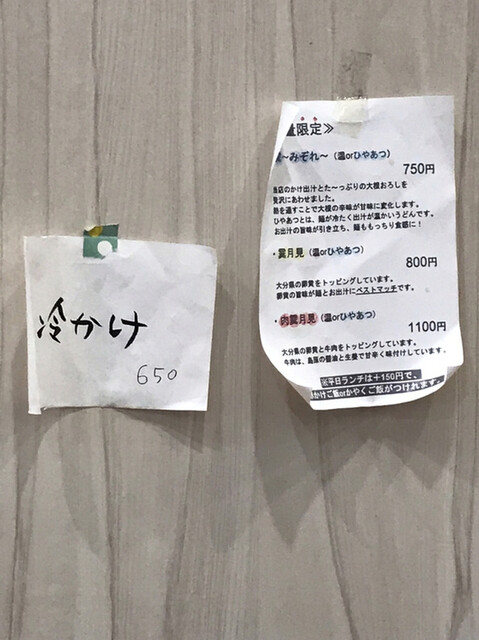 冷かけ
650
量限定≫
～みぞれ～（温orひやあつ）
750円
当店のかけ出汁とた～っぷりの大根おろしを
贅沢にあわせました。
熱を通すことで大根の辛味が甘味に変化します。
ひやあつとは、麺が冷たく出汁が温かいうどんです。
お出汁の旨味が引き立ち、麺ももっちり食感に！
・黄月見（温orひやあつ）
800円
大分県の卵黄をトッピングしています。
卵黄の旨味が麺とお出汁にベストマッチです。
・肉黄月見（温orひやあつ）
1100円
大分県の卵黄と牛肉をトッピングしています。
牛肉は、島原の醤油と生姜で甘辛く味付けしています。
※平日ランチは＋150円で、
かけご飯orかやくご飯がつけれます。